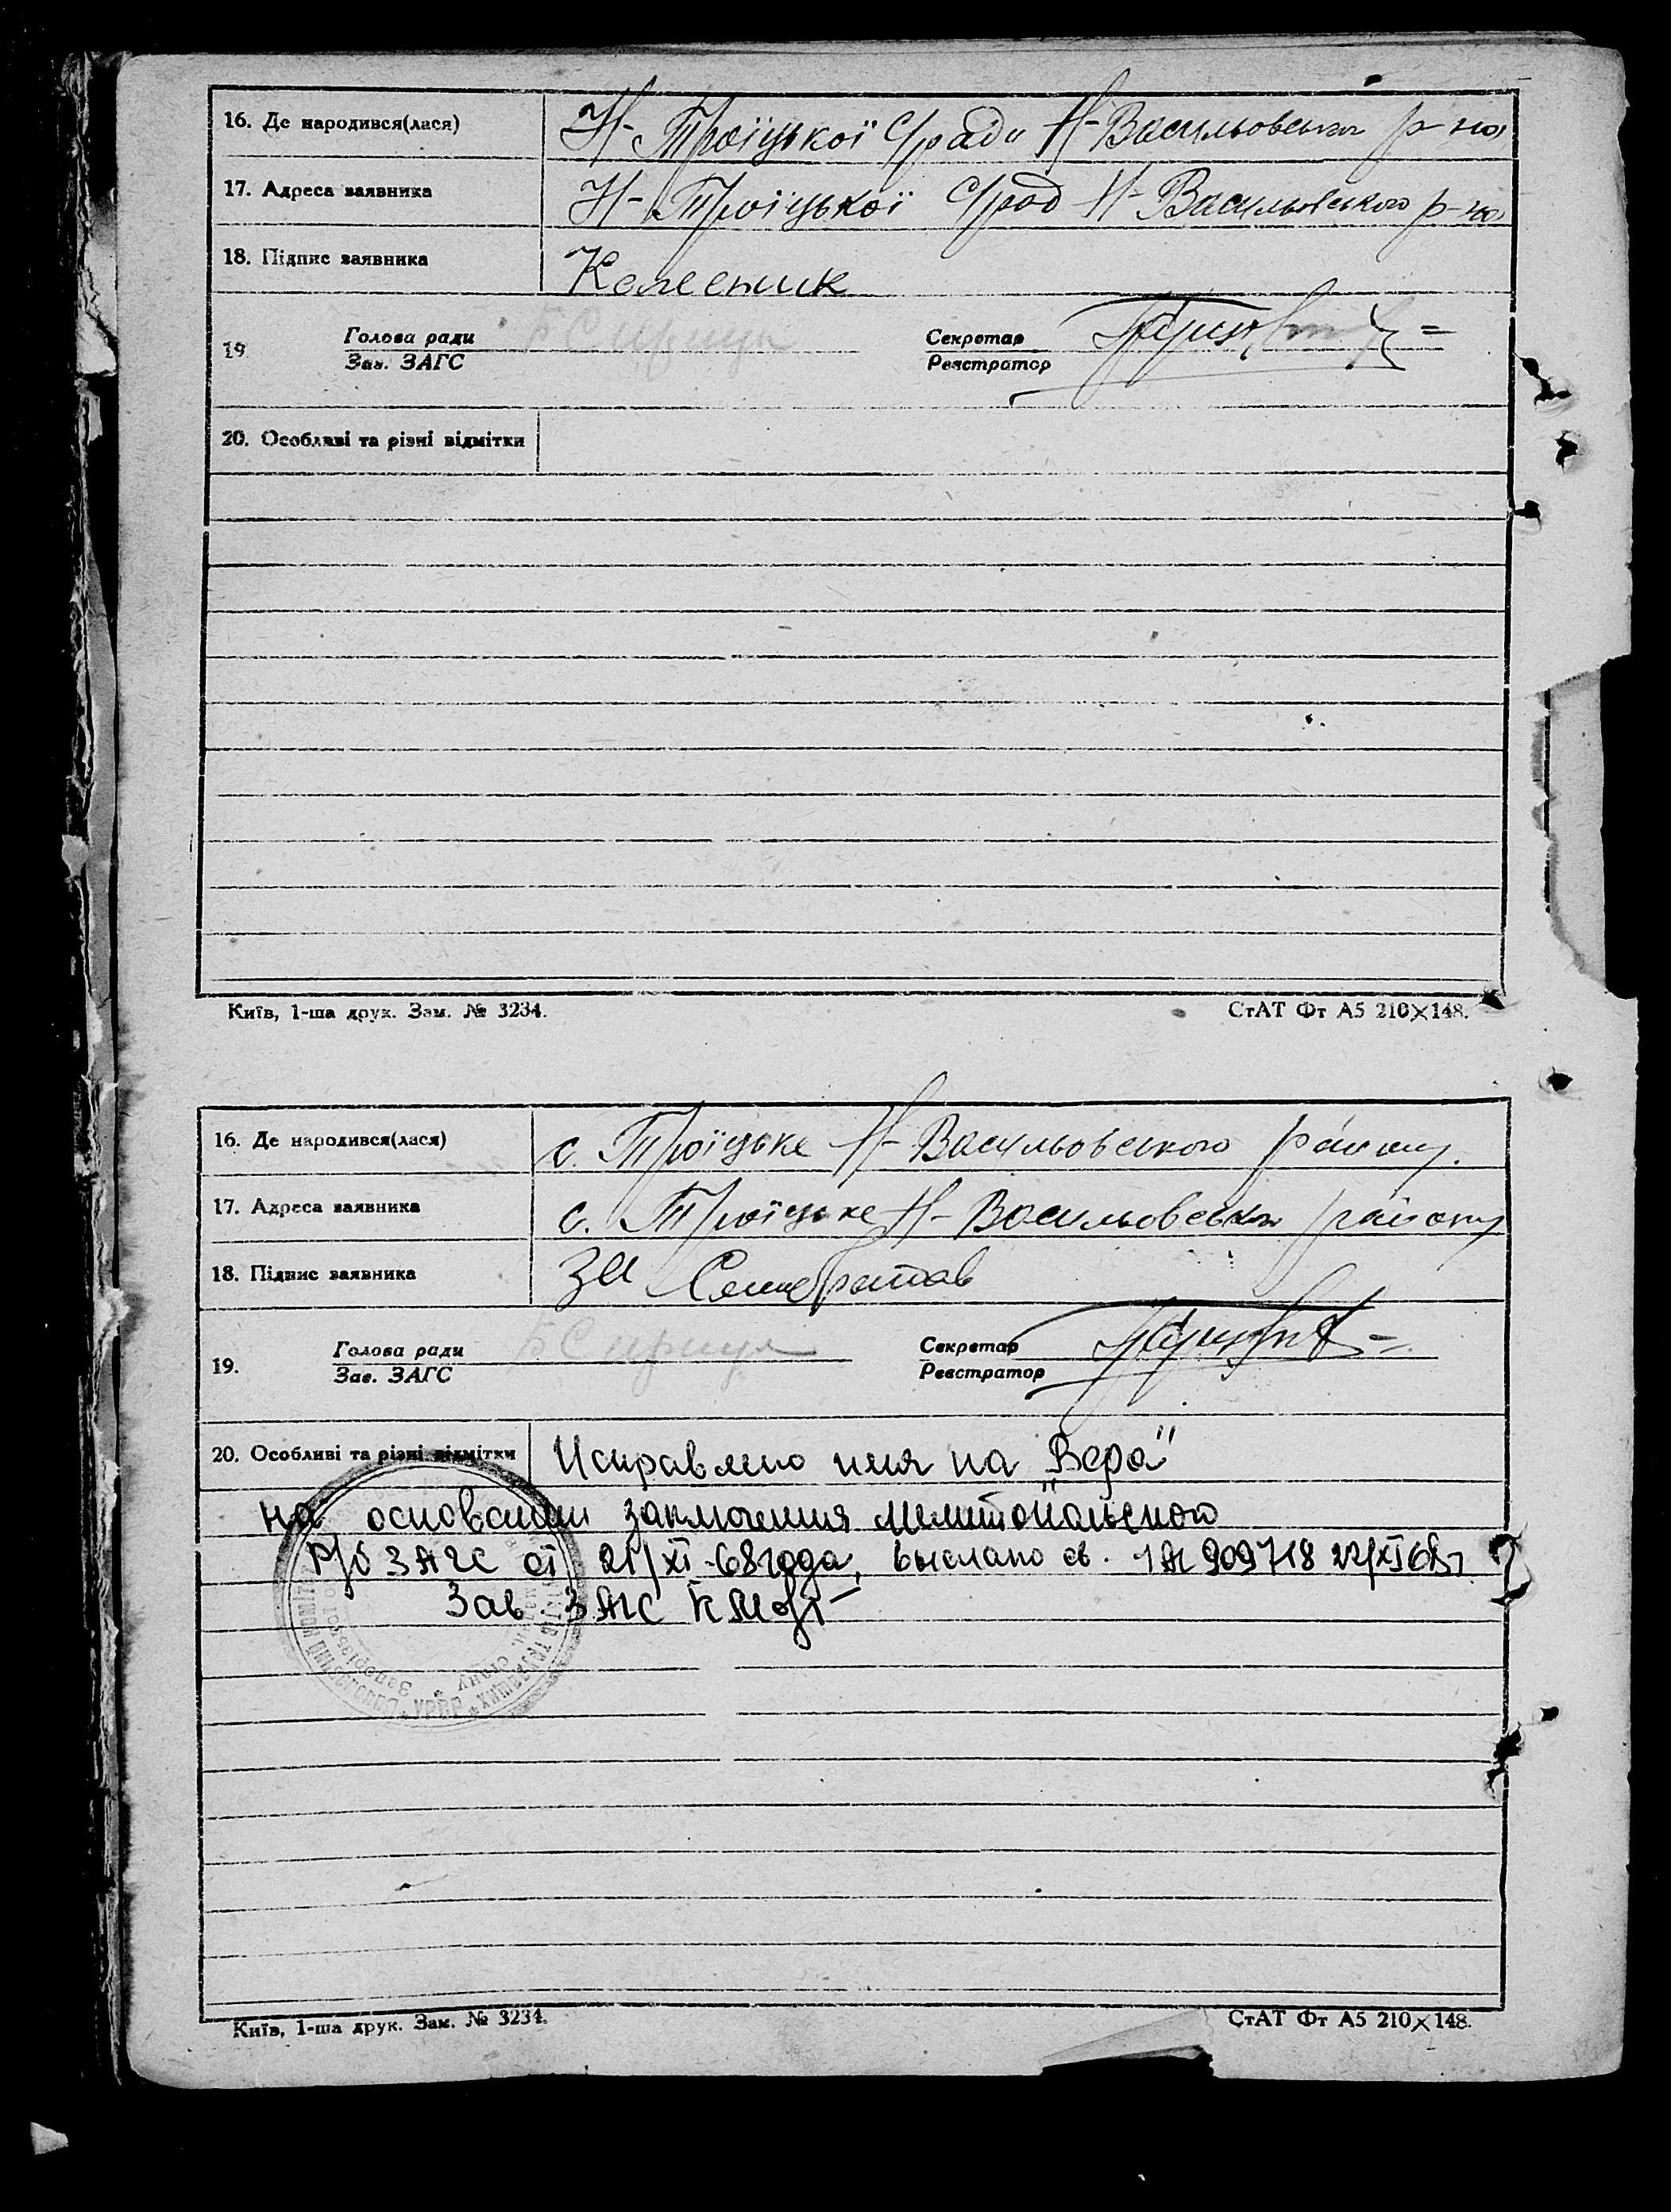 16. Де народився(лася) Н-Троїцької С/ради Н-Васильовського р-ну
17. Адреса заявника Н-Троїцької С/рад Н-Васильовського р-ну
18. Підпис заявника Колесник
19. Голова ради Секретар
Зав. ЗАГС Реєстратор
20. Особливі та різні відмітки
Київ, 1-ша друк. Зам. № 3234. СтАТ Фт А5 210×148.
16. Де народився(лася) с. Троїцьке Н-Васильовського району.
17. Адреса заявника с. Троїцьке Н-Васильовського району
18. Підпис заявника За
19. Голова ради Секретар
Зав. ЗАГС Реєстратор
20. Особливі та різні відмітки Исправлено имя на „Вера"
на основании заключения Мелитопольского
Р/О ЗАГС от 21/XI-68 года, выслано св. 909718 22/XI 68г
Зав ЗАГС
Київ, 1-ша друк. Зам. № 3234. СтАТ Фт А5 210×148.